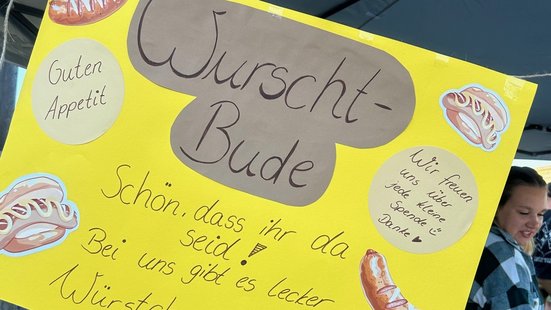 Wurscht-
Bude
Guten
Appetit
Wir freuen
uns über
jede kleine
Spende
Danke
Schön, dass ihr da
seid!
Bei uns gibt es lecker